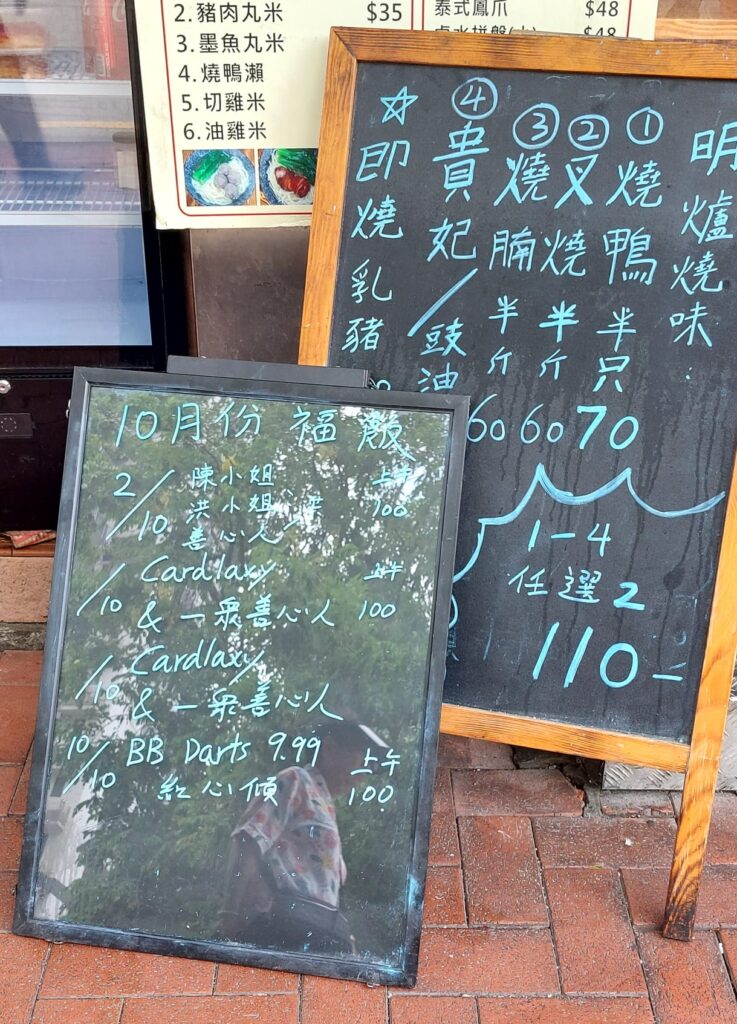 2. 豬肉丸米 $35
3. 墨魚丸米
4. 燒鴨瀨
5. 切雞米
6. 油雞米
泰式鳳爪 $48
$48
明爐燒味
① 燒鴨 半只 70
② 叉燒 半斤 60
③ 燒腩 半斤 60
④ 貴妃/豉油
☆ 即燒乳豬
1-4
任選2
110-
10月份 福飯
2/10 陳小姐、 上午
洪小姐、 100
善心人
/10 Cardlaxy 上午
& 一眾善心人 100
/10 Cardlaxy
& 一眾善心人
10/10 BB Darts 9.99 上午
紅心傾 100